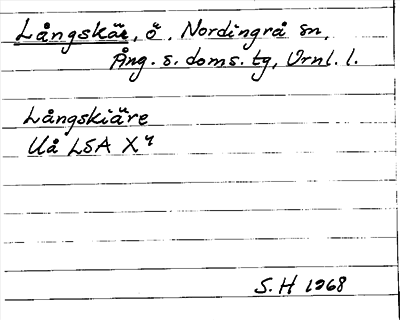 Långskär, ö, Nordingrå sn,
Ång. s. doms. tg, Vrnl. l.
Långskiäre
Uå LSA X4
S.H 1968